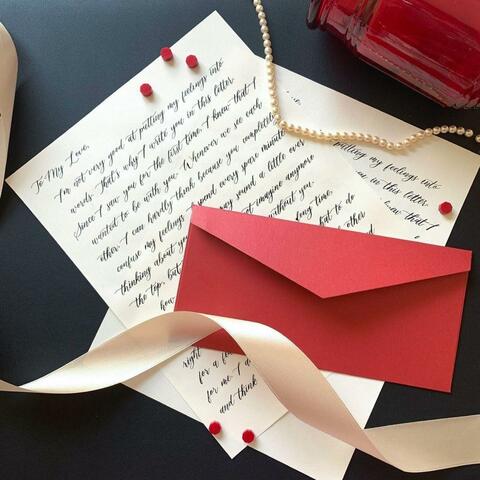 To My Love,
I'm not very good at putting my feelings into
words. That's why I write you in this letter.
Since I saw you for the first time, I knew that I
wanted to be with you. Whenever we see each
other, I can hardly think because you completel
confuse my feelings. I spend every spare minute
thinking about you. may sound a little over
the top, but not imagine anymore
how without you.
long time,
but to do
other
right
for a
for me. I do
and think
ve,
putting my feelings into
in this letter.
knew that I